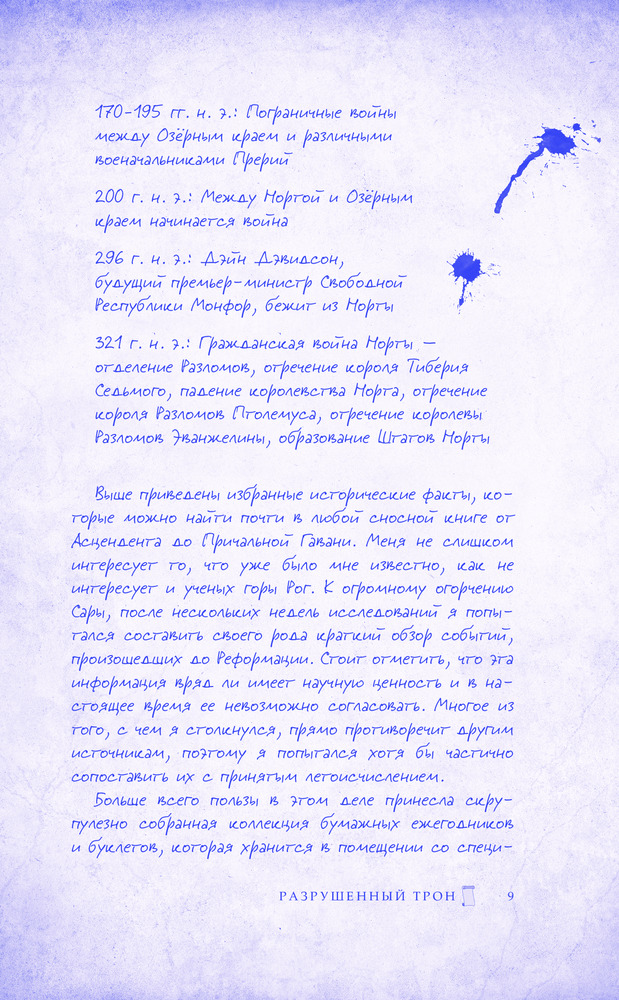 170-195 гг. н. э.: Пограничные войны
между Озёрным краем и различными
военачальниками Прерий
200 г. н. э.: Между Нортой и Озёрным
краем начинается война
296 г. н. э.: Дэйн Дэвидсон,
будущий премьер-министр Свободной
Республики Монфор, бежит из Норты
321 г. н. э.: Гражданская война Норты —
отделение Разломов, отречение короля Тиберия
Седьмого, падение королевства Норта, отречение
короля Разломов Птолемуса, отречение королевы
Разломов Эванжелины, образование Штатов Норты
Выше приведены избранные исторические факты, ко-
торые можно найти почти в любой сносной книге от
Асцендента до Причальной Гавани. Меня не слишком
интересует то, что уже было мне известно, как не
интересует и ученых горы Рог. К огромному огорчению
Сары, после нескольких недель исследований я попы-
тался составить своего рода краткий обзор событий,
произошедших до Реформации. Стоит отметить, что эта
информация вряд ли имеет научную ценность и в на-
стоящее время ее невозможно согласовать. Многое из
того, с чем я столкнулся, прямо противоречит другим
источникам, поэтому я попытался хотя бы частично
сопоставить их с принятым летоисчислением.
Больше всего пользы в этом деле принесла скру-
пулезно собранная коллекция бумажных ежегодников
и буклетов, которая хранится в помещении со специ-
РАЗРУШЕННЫЙ ТРОН 9